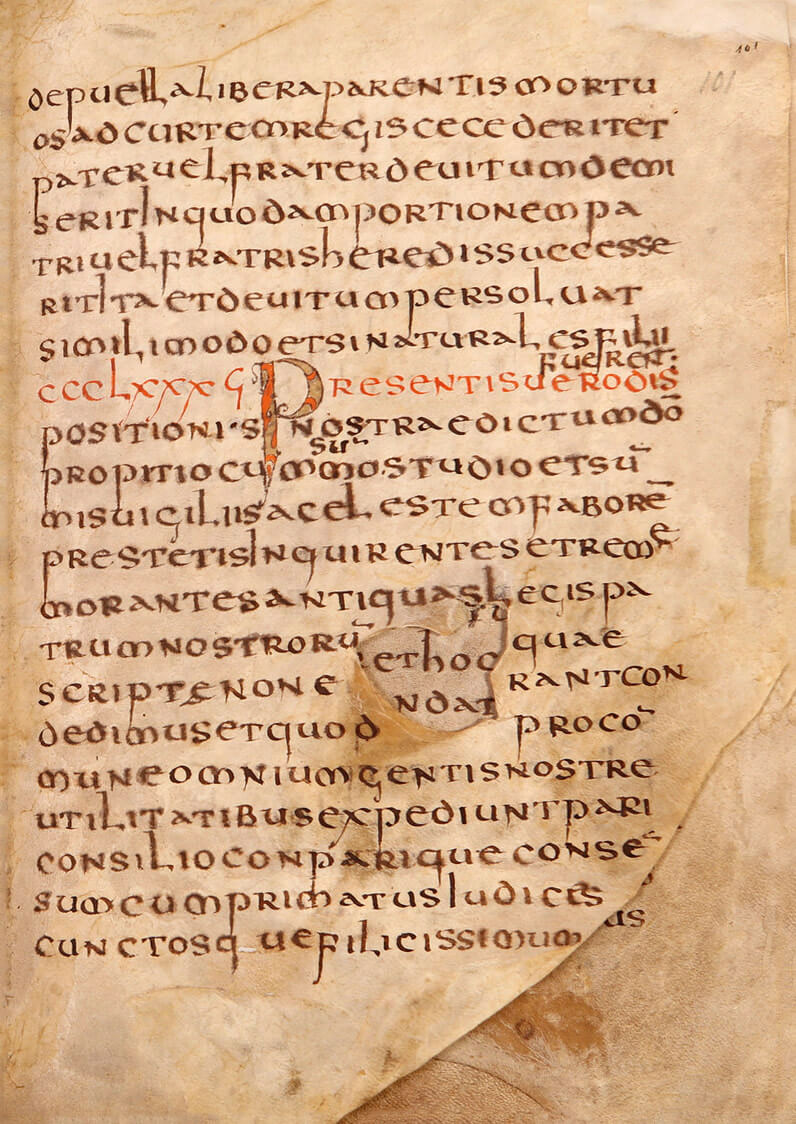 101
101
depuella libera parentis mortu
os ad curtem regis cecederit et
pater uel frater deuitum demi
serit In quodam portionem pa
tri uel fratris heredis successe
rit Ita et deuitum persoluat
simili modo et si naturales filii
fuerent:
CCCLXXXG Presentis uero dis
positioni·s nostrae dictum dō
propitio cum summo studio et sū
mis uigiliis a celestem faborē
prestetis Inquirentes et remē
morantes antiquas legis pa
trum nostrorū quae
scripte non e rant con
dedimus et quod pro cō
mune omnium gentis nostre
utilitatibus expediunt pari
consilio conparique consē
sum cum primatus Iudices
cunctosque filicissimum